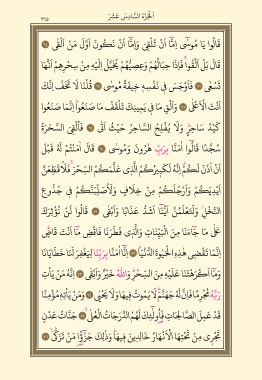 الجزء السادس عشر
٣١٥
قَالُوا يَا مُوسَى اِمَّٓا اَنْ تُلْقِيَ وَاِمَّٓا اَنْ نَكُونَ اَوَّلَ مَنْ اَلْقٰى
قَالَ بَلْ اَلْقُوا فَاِذَا حِبَالُهُمْ وَعِصِيُّهُمْ يُخَيَّلُ اِلَيْهِ مِنْ سِحْرِهِمْ اَنَّهَا
تَسْعٰى فَاَوْجَسَ فِي نَفْسِهِ خِيفَةً مُوسٰى قُلْنَا لَا تَخَفْ اِنَّكَ
اَنْتَ الْاَعْلٰى وَاَلْقِ مَا فِي يَمِينِكَ تَلْقَفْ مَا صَنَعُوا اِنَّمَا صَنَعُوا
كَيْدُ سَاحِرٍ وَلَا يُفْلِحُ السَّاحِرُ حَيْثُ اَتٰى فَاُلْقِيَ السَّحَرَةُ
سُجَّدًا قَالُٓوا اٰمَنَّا بِرَبِّ هٰرُونَ وَمُوسٰى قَالَ اٰمَنْتُمْ لَهُ قَبْلَ
اَنْ اٰذَنَ لَكُمْ اِنَّهُ لَكَبِيرُكُمُ الَّذِي عَلَّمَكُمُ السِّحْرَ فَلَاُقَطِّعَنَّ
اَيْدِيَكُمْ وَاَرْجُلَكُمْ مِنْ خِلَافٍ وَلَاُصَلِّبَنَّكُمْ فِي جُذُوعِ
النَّخْلِ وَلَتَعْلَمُنَّ اَيُّنَٓا اَشَدُّ عَذَابًا وَاَبْقٰى قَالُوا لَنْ نُؤْثِرَكَ
عَلٰى مَا جَٓاءَنَا مِنَ الْبَيِّنَاتِ وَالَّذِي فَطَرَنَا فَاقْضِ مَٓا اَنْتَ قَاضٍ
اِنَّمَا تَقْضِي هٰذِهِ الْحَيٰوةَ الدُّنْيَا اِنَّٓا اٰمَنَّا بِرَبِّنَا لِيَغْفِرَ لَنَا خَطَايَانَا
وَمَٓا اَكْرَهْتَنَا عَلَيْهِ مِنَ السِّحْرِ وَاللّٰهُ خَيْرٌ وَاَبْقٰى اِنَّهُ مَنْ يَأْتِ
رَبَّهُ مُجْرِمًا فَاِنَّ لَهُ جَهَنَّمَ لَا يَمُوتُ فِيهَا وَلَا يَحْيٰى وَمَنْ يَأْتِهِ مُؤْمِنًا
قَدْ عَمِلَ الصَّالِحَاتِ فَاُولٰٓئِكَ لَهُمُ الدَّرَجَاتُ الْعُلٰى جَنَّاتُ عَدْنٍ
تَجْرِي مِنْ تَحْتِهَا الْاَنْهَارُ خَالِدِينَ فِيهَا وَذٰلِكَ جَزٰٓؤُا مَنْ تَزَكّٰى